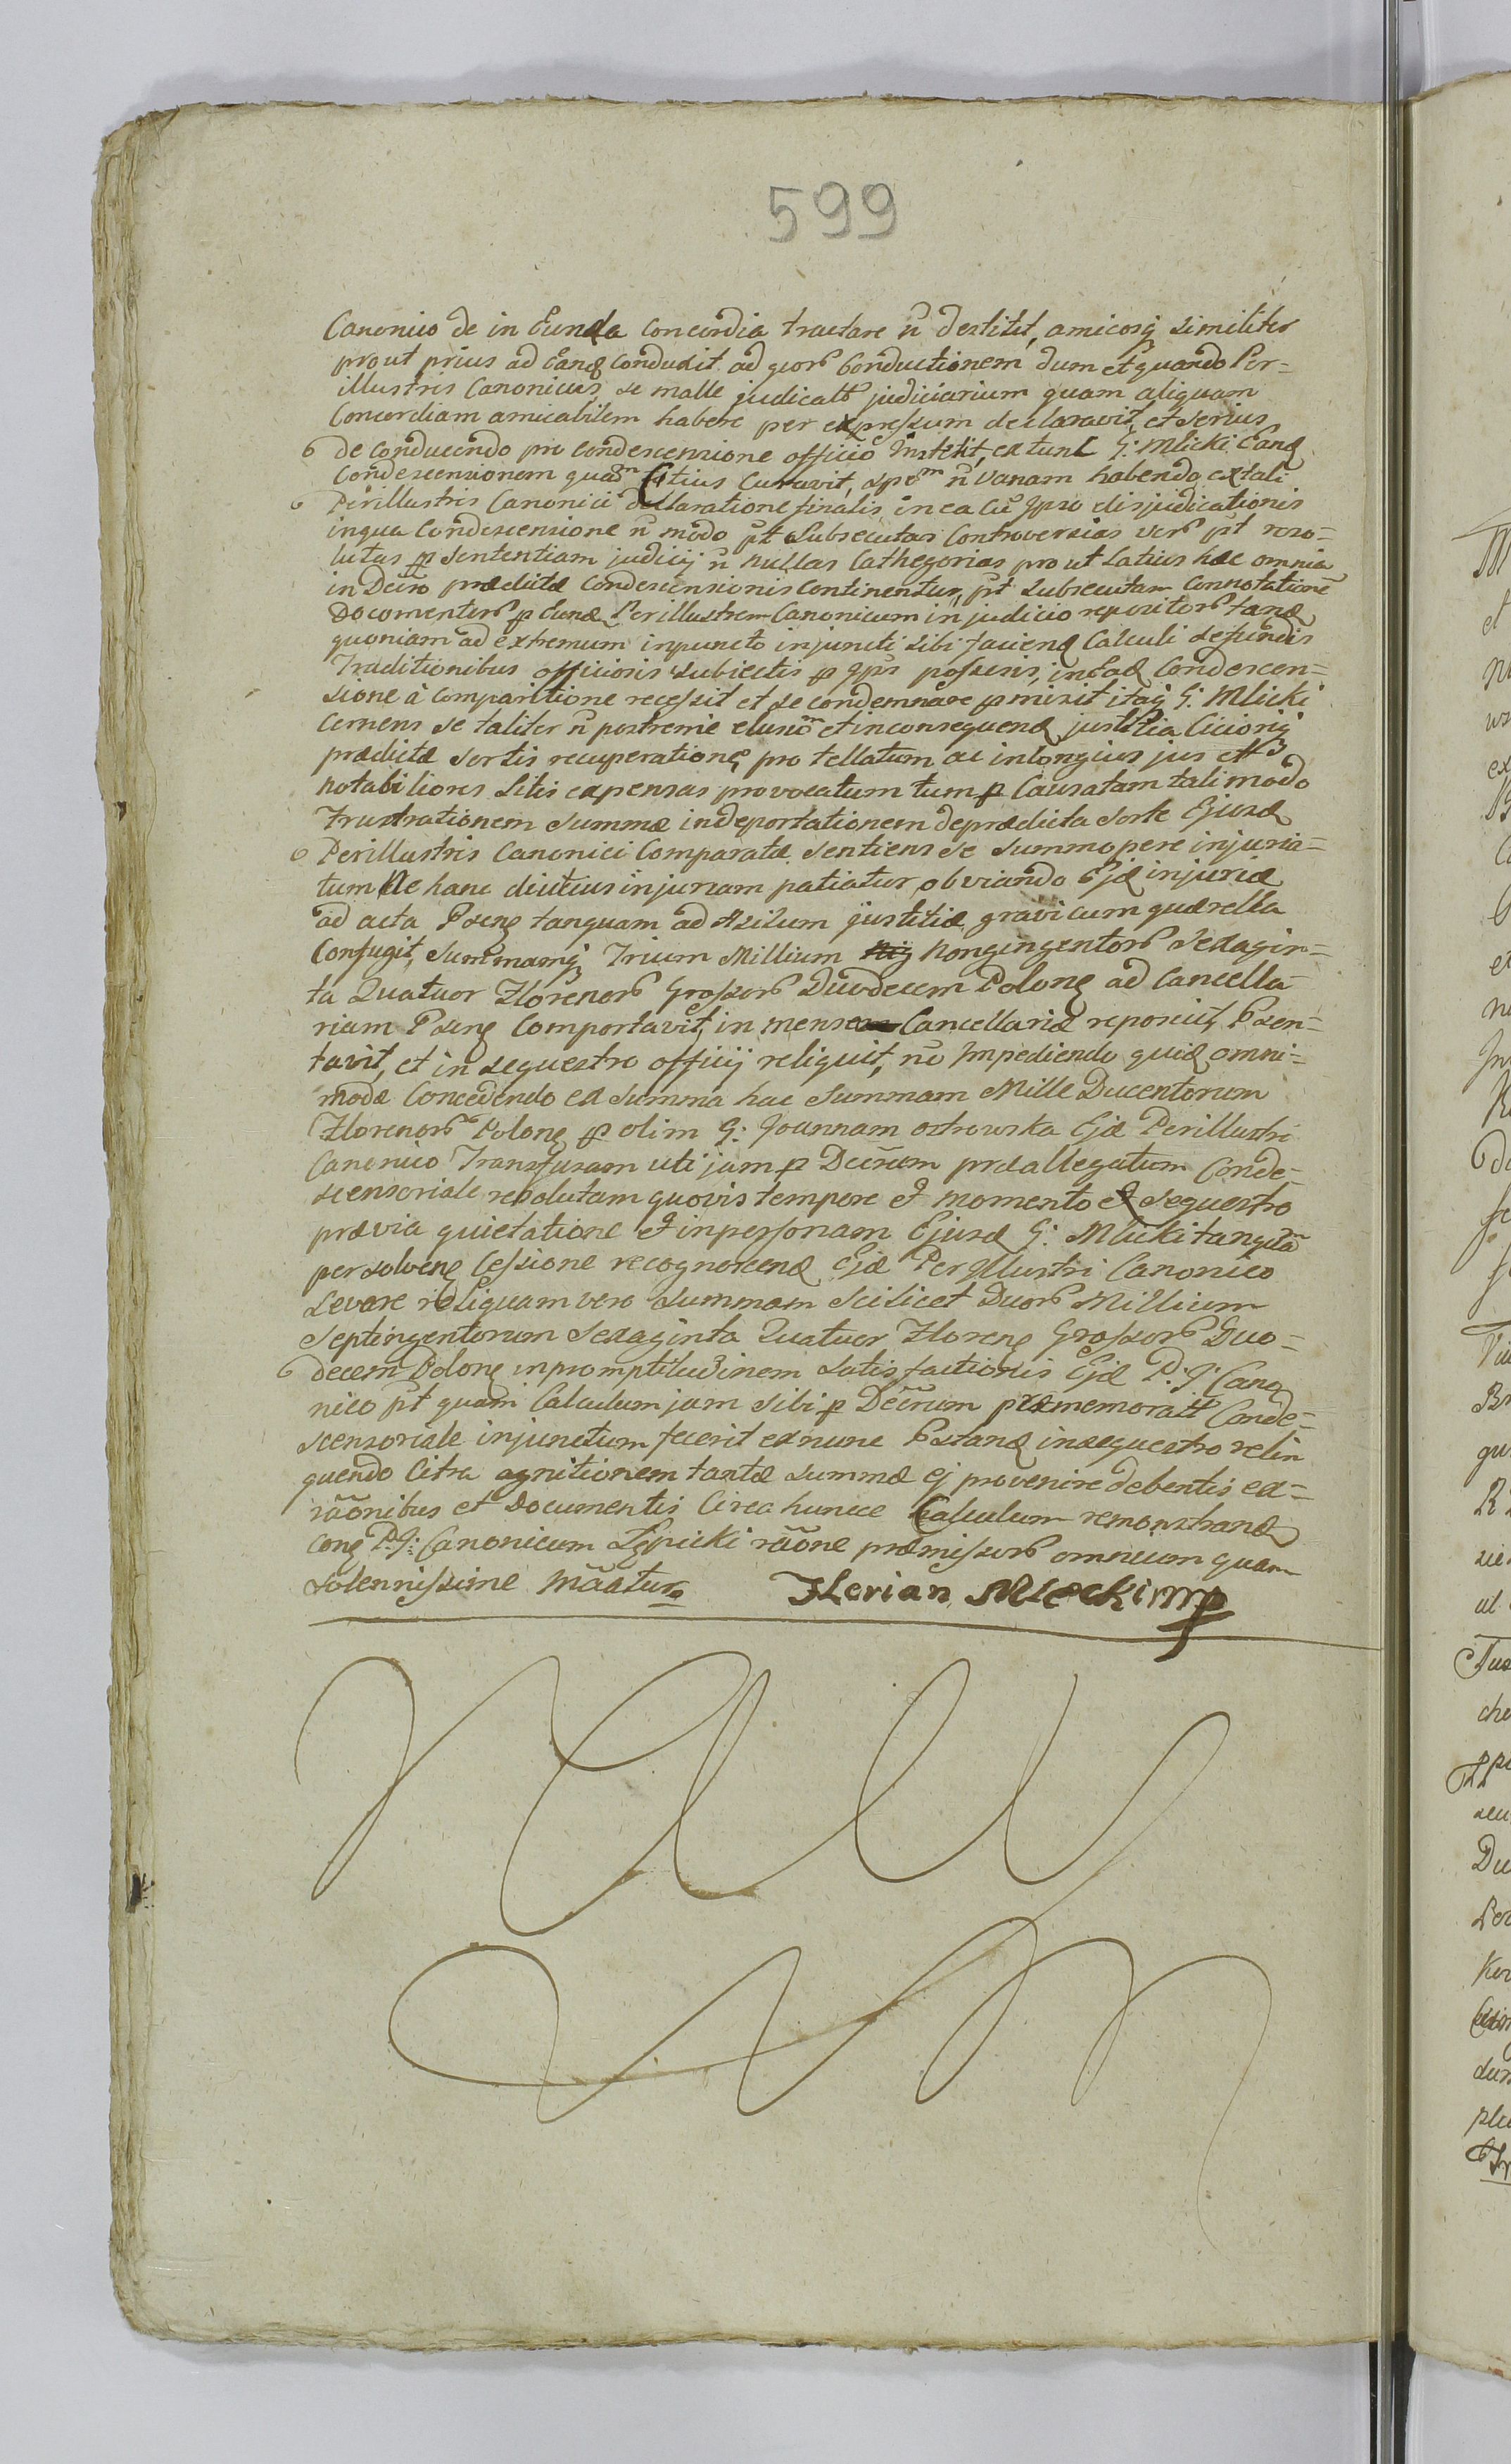 599
Canonico de in Eunda Concordia tractare ñ destitit, amicosq similiter
prout prius ad Eanq conduxit ad quor Conductionem dum et quando Per=
illustris Canonicus, se malle judicatt judiciarium quam aliquam
Concordiam amicabilem habere per expressum declaravit, et serius
de Conducendo pro condescensione officio Institit, ex tunc G: Mlicki Eanq
Condescensionem quam Citius Curavit, spem ñ vanam habendo ex tali
Perillustris Canonici declaratione finalis in ea cũ Ipso disjudicationis
in qua Condescensione ñ modo pt Subsecutas Controversias vero pt reso=
lutas p Sententiam judicij ñ nullas Cathegorias prout Latius hæc omnia
in Decro prædictæ Condescensionis continentur, pt Subsecutam Connotatione
Documentor p Eunq Perillustrem Canonicum in judicio repositor tanq
quoniam ad extremum in puncto injuncti sibi faciend Calculi Sefundis
Traditionibus officiosis subiectis p Ipss possessis, in Eadq Condescen=
sione à Comparitione recessit et se condemnare pmisit itaq G: Mlicki
Cernens se taliter ñ postreme elusum et inconsequend justitia Cicionq
prædictæ Sortis recuperatione, pro tellatum ac in longius jus ett
notabiliores Litis expensas provocatum tum p Causatam tali modo
Frustrationem Summæ in deportationem de prædicta Sorte Ejusd
Perillustris Canonici Comparatæ Sentiens se summopere injuria=
tum Ne hanc diutius injuriam patiatur, obviando Ejd injuriæ
ad acta Psenq tanquam ad Asilum justitiæ gravi cum quærella
Confugit, Summamq Trium Millium Nongingentor Sexagin=
ta Quatuor Florenor Grossor Duodecem Polonq ad Cancella
riam Psenq Comportavit, in mensa Cancellariæ reposuit, Psen=
tavit, et in sequestro officij reliquit, no Impediendo quid omni=
mode Concedendo ex Summa hac Summam Mille Ducentorum
Florenor Polonq p olim G: Joannam Ostrowska Ejd Perillustri
Canonico Transfusam uti jam p Decrum præallegatum Conde=
scensoriale resolutam quovis tempore et momento e Sequestro
prævia quietatione et in personam Ejusd G: Mlicki tangtam
persolvenq Cessione recognoscend Ejd Perillustri Canonico
Levare reliquam vero Summam Scilicet Duor Millium
Septingentorum Sexaginta Quatuor Florenq Grossor Duo=
decem Polonq in promptitudinem Satisfactionis Ejd P: J: Cano
nico pt quam Calculum jam sibi p Decrum præmemoratt Conde=
scensoriale injunctum fecerit ex nunc Pstand in sequestro relin
quendo Citra agnitionem tantæ Summæ ej provenire debentis ex=
rãonibus et Documentis Circa huncce Calculum remonstrand
conq P: J: Canonicum Lępicki rãone præmissor omnium quam
Solennissime mãatur. Florian Mleckimp